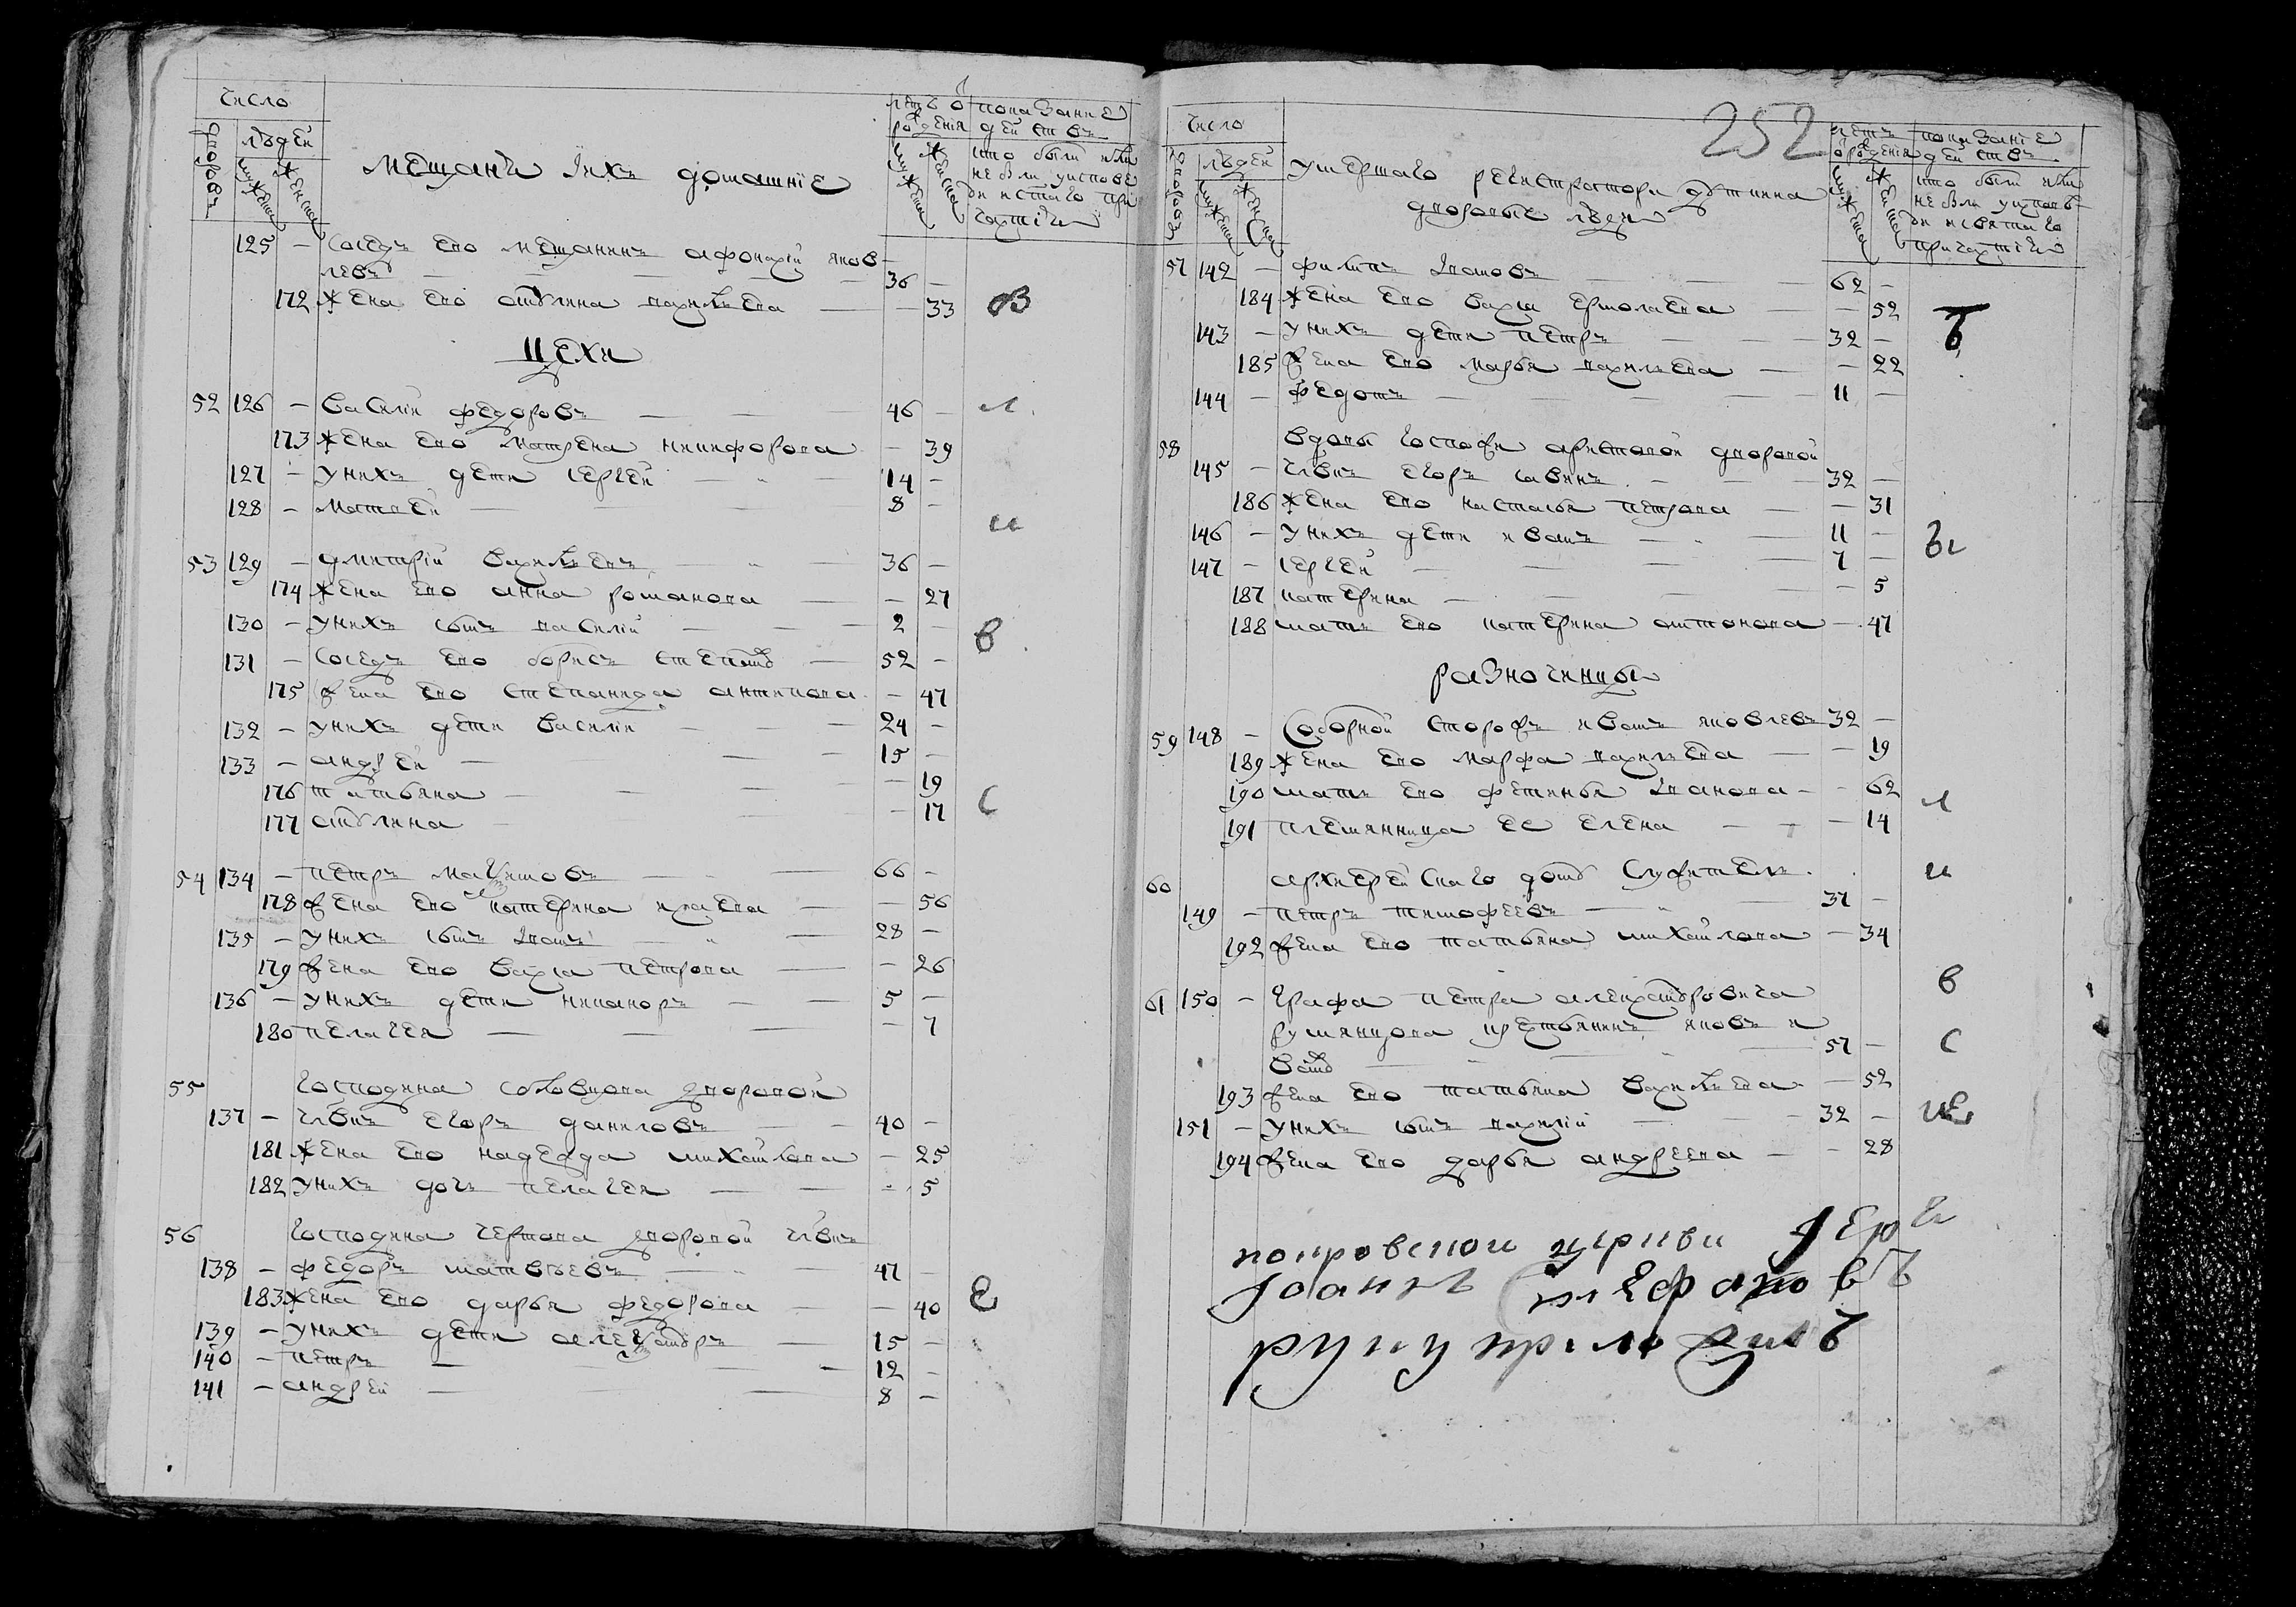 число
дворовъ
людей
мужеска
женска
мещанъ їихъ домашнїе
летъ о
рожденїя
мужеска
женска
показание
действъ
кто были или
не были уиспове
ди истаго при
частїя
125 — соседъ ево мещанинъ афонасїй яков
левъ — 36 —
172 жена ево авдотья васильева — — 33
цехи
52 126 — василїй федоровъ — 46 —
173 жена ево матрена никифорова — 39
127 — у нихъ дети сергей — 14 —
128 — матвей — 8 —
53 129 — дмитрїй васильевъ — 36 —
174 жена ево анна романова — — 27
130 — у нихъ сынъ василїй — 2 —
131 — соседъ ево борисъ степановъ — 52 —
175 жена ево степанида антипова — 47
132 — у нихъ дети василїй — 24 —
133 — андрей — 15 —
176 татьяна — — 19
177 — 17
54 134 — петръ максимовъ — 66 —
178 жена ево катерина исаева — — 56
135 — у нихъ сынъ иванъ — 28 —
179 жена ево васса петрова — — 26
136 — у нихъ дети никаноръ — 5 —
180 пелагея — — 7
55 господина соловцова дворовой
137 — члвкъ егоръ даниловъ — 40 —
181 жена ево надежда михайлова — 25
182 у нихъ дочь пелагея — — 5
56 господина чертова дворовой члвкъ
138 — федоръ матвеевъ — 47 —
183 жена ево дарья федорова — — 40
139 — у нихъ дети александръ — 15 —
140 — петръ — 12 —
141 — андрей — 8 —
252
число
дворовъ
людей
мужеска
женска
умершаго регистратора
дворовые люди
летъ
о рожденїя
мужеска
женска
показанїе
действъ
кто были или
не были уиспове
ди исвятаго
причастїя
57 142 — филипъ ивановъ — 62 —
184 жена ево васса ермолаева — — 52
143 — у нихъ дети петръ — 32 —
185 жена ево марья васильева — — 22
144 — федотъ — 11 —
58 вдовы госпожи дворовой
145 — члвкъ егоръ савинъ — 32 —
186 жена ево настасья петрова — — 31
146 — у нихъ дети иванъ — 11 —
147 — сергей — 7 —
187 катерина — — 5
188 мать ево катерина антонова — 47
разночинцы
59 148 — соборной сторожъ иванъ яковлевъ 32 —
189 жена ево марфа васильева — — 19
190 мать ево фетинья иванова — — 62
191 племянница ее елена — — 14
60 архиерейскаго дому служители
149 — петръ тимофеевъ — 37 —
192 жена ево татьяна михайлова — 34
61 150 — графа петра александровича
румянцова крестьянинъ яковъ и
вановъ — 57 —
193 жена ево татьяна васильева — 52
151 — у нихъ сынъ василїй — 32 —
194 жена ево дарья андреева — — 28
покровскои церкви иереи
иоаннъ
руку приложилъ